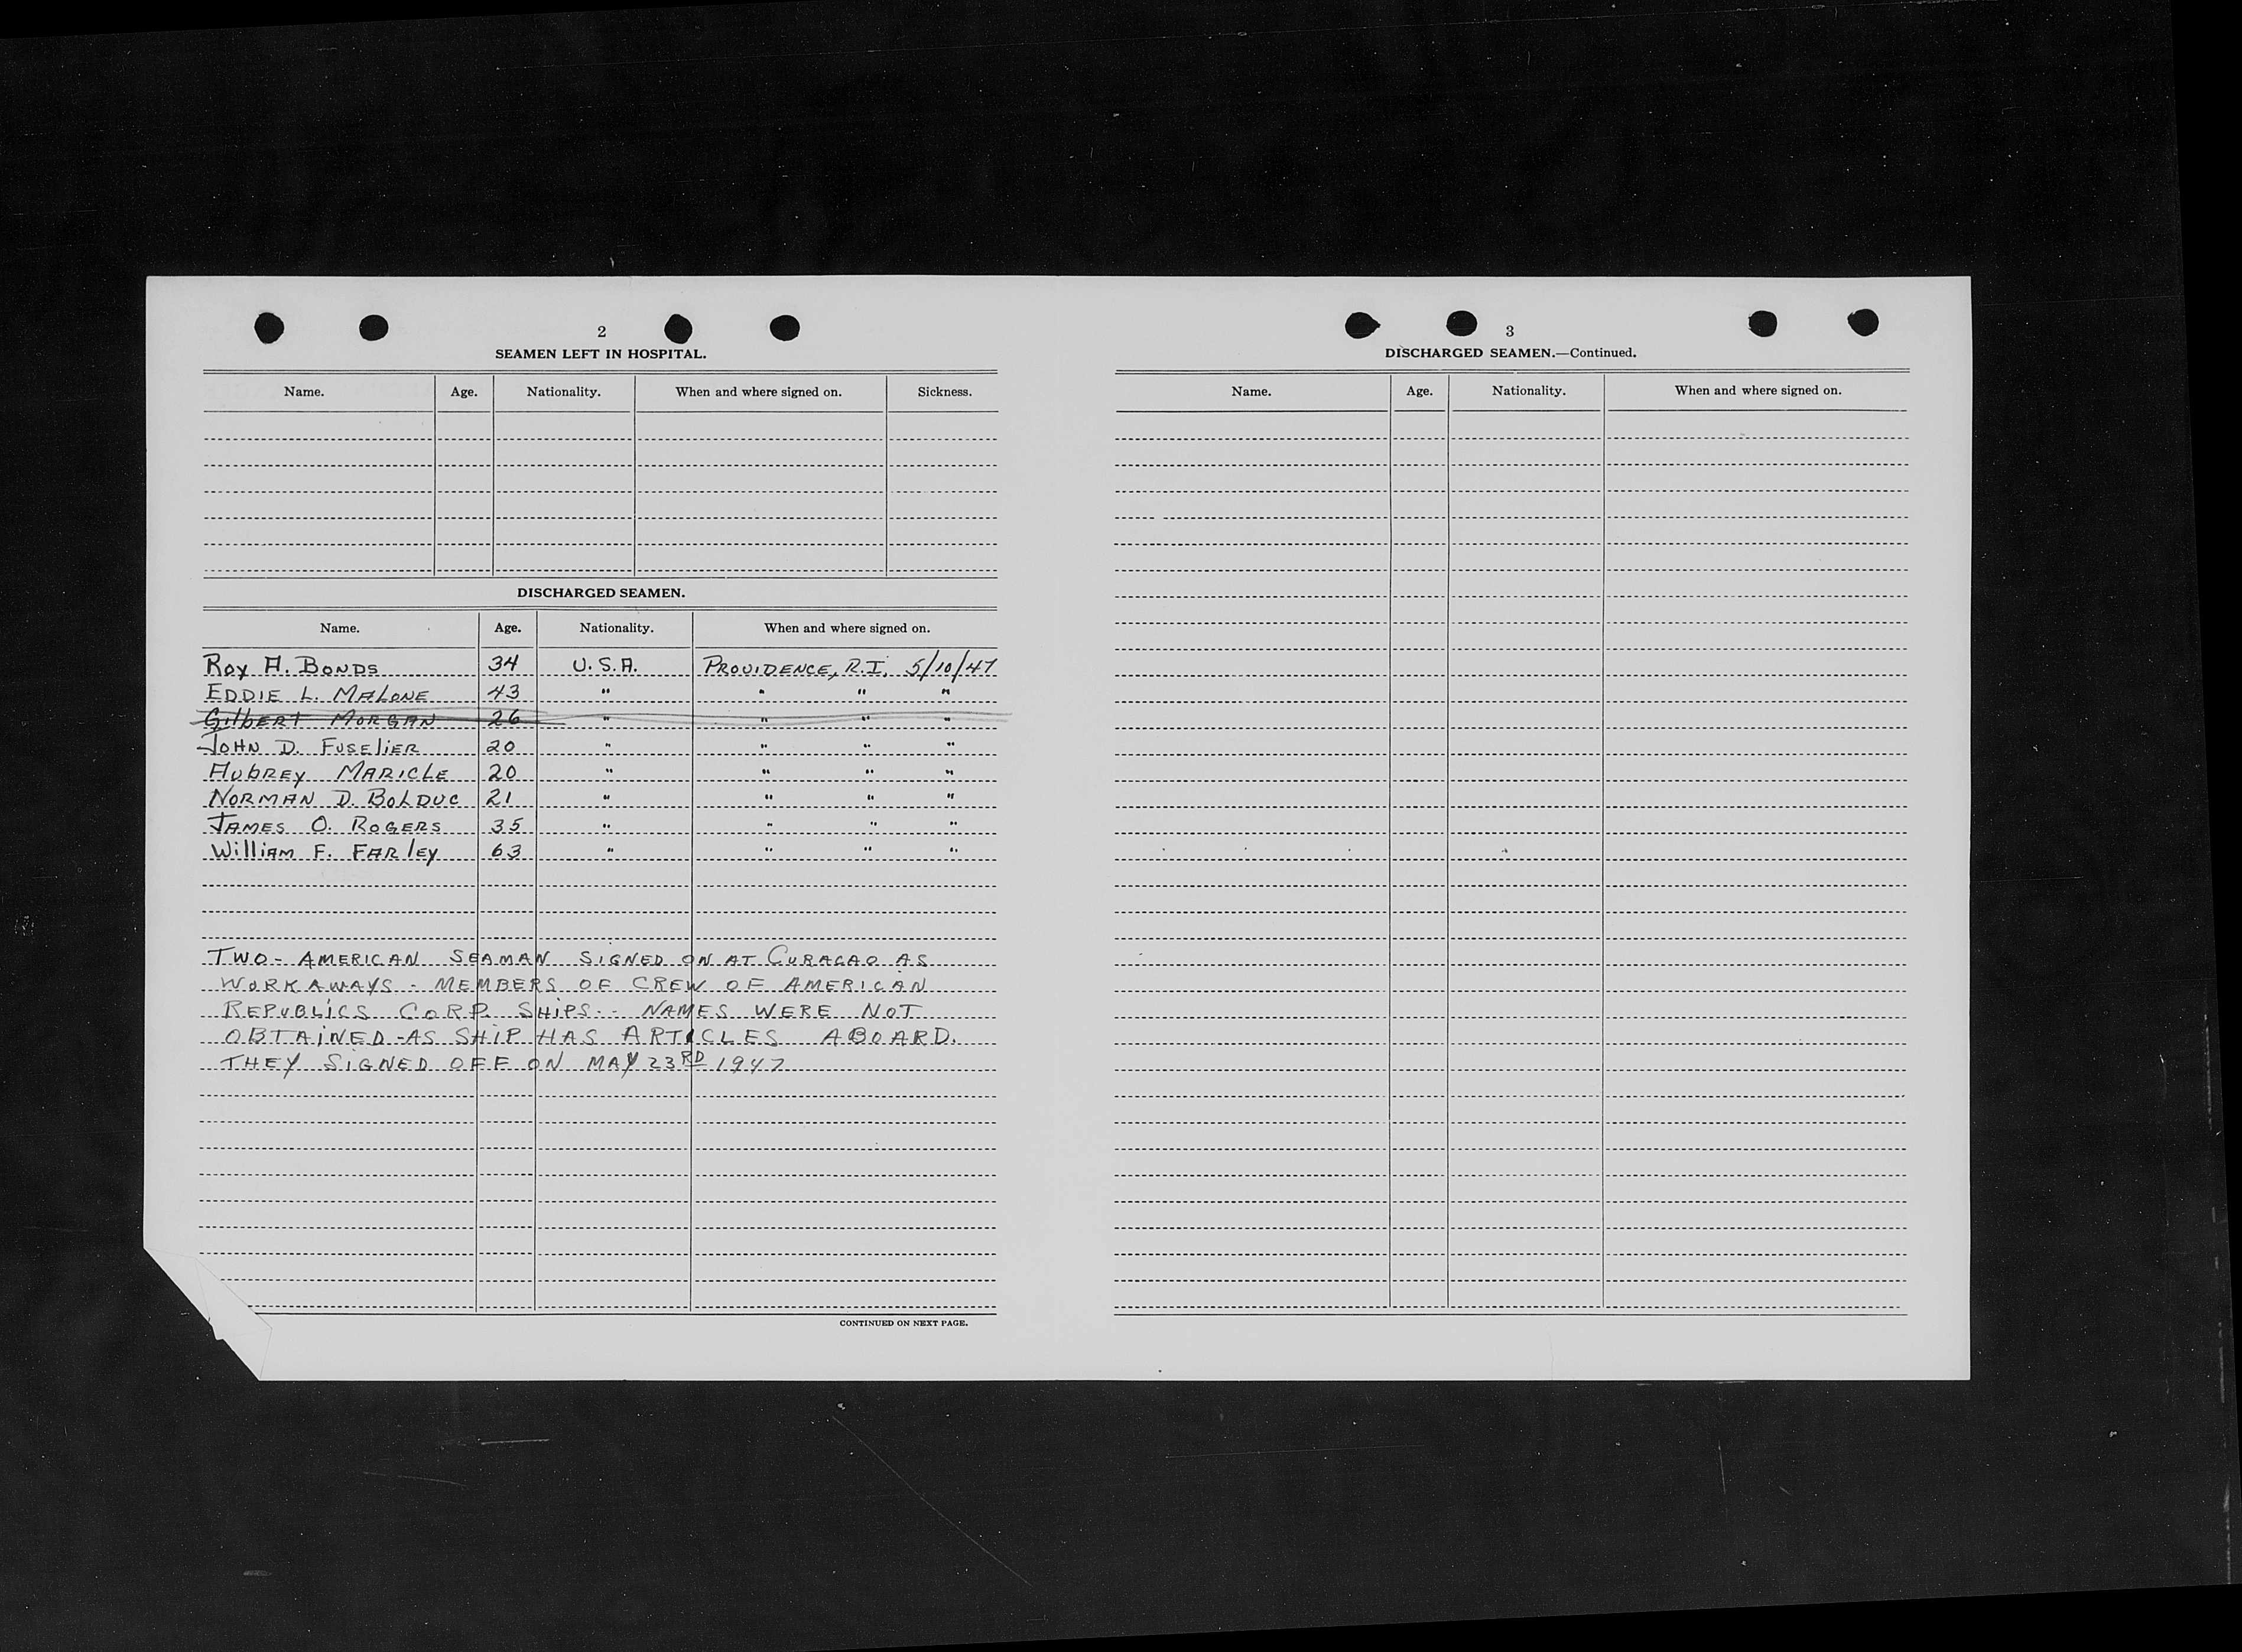 2
SEAMEN LEFT IN HOSPITAL.
Name. Age. Nationality. When and where signed on. Sickness.
DISCHARGED SEAMEN.
Name. Age. Nationality. When and where signed on.
Roy A. Bonds 34 U.S.A. Providence, R.I. 5/10/47
Eddie L. Malone 43 " " " "
Gilbert Morgan 26 " " " "
John D. Fuselier 20 " " " "
Aubrey Maricle 20 " " " "
Norman D. Bolduc 21 " " " "
James O. Rogers 35 " " " "
William F. Farley 63 " " " "
TWO - AMERICAN SEAMAN SIGNED ON AT CURACAO AS
WORKAWAYS - MEMBERS OF CREW OF AMERICAN
REPUBLICS CORP. SHIPS. - NAMES WERE NOT
OBTAINED - AS SHIP HAS ARTICLES ABOARD.
THEY SIGNED OFF ON MAY 23RD 1947
CONTINUED ON NEXT PAGE.
3
DISCHARGED SEAMEN.—Continued.
Name. Age. Nationality. When and where signed on.